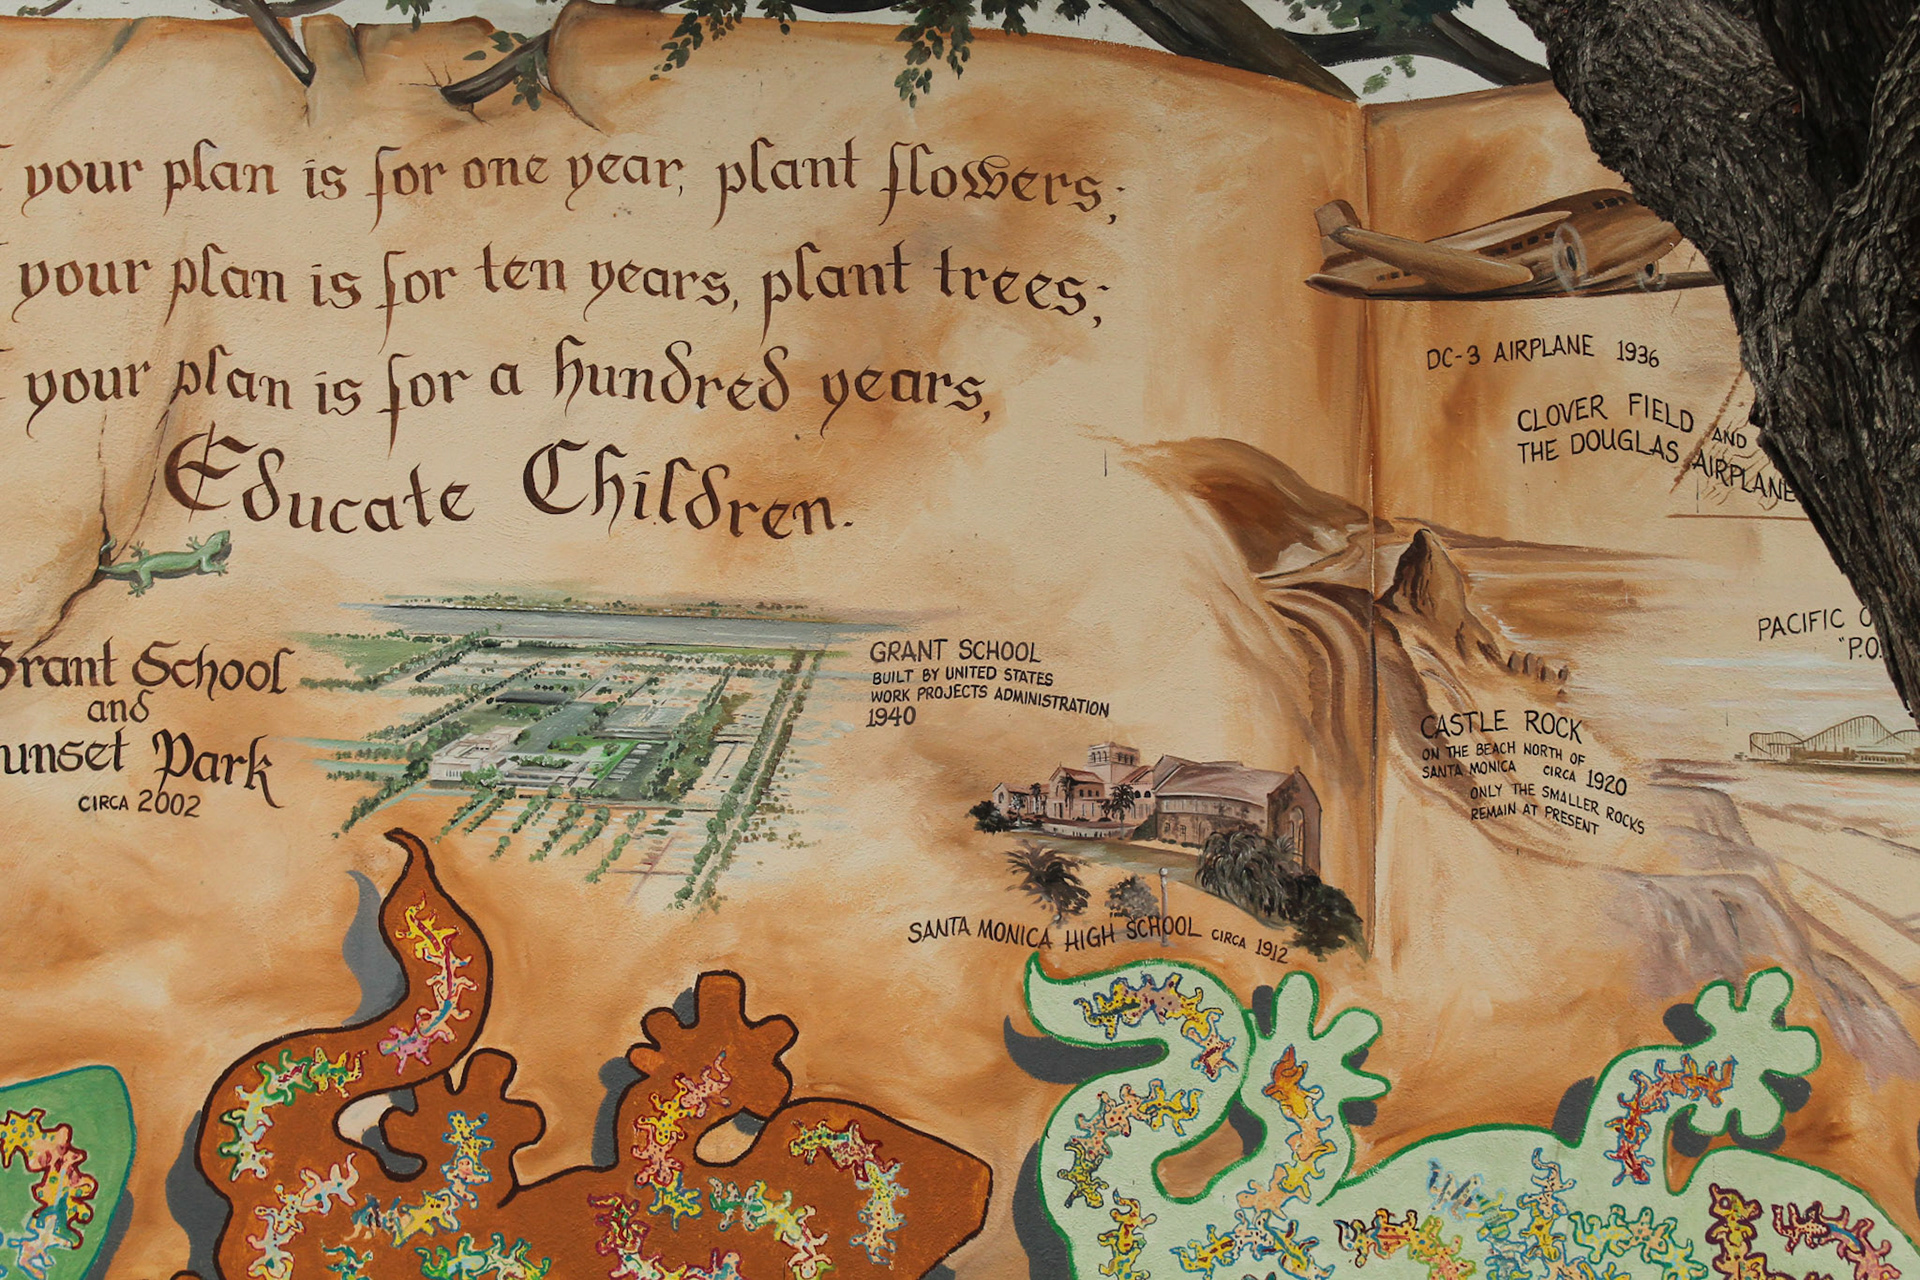 your plan is for one year, plant flowers;
your plan is for ten years, plant trees;
your plan is for a hundred years,
Educate Children.
Grant School
and
unset Park
CIRCA 2002
GRANT SCHOOL
BUILT BY UNITED STATES
WORK PROJECTS ADMINISTRATION
1940
SANTA MONICA HIGH SCHOOL CIRCA 1912
DC-3 AIRPLANE 1936
CLOVER FIELD AND
THE DOUGLAS AIRPLANE
CASTLE ROCK
ON THE BEACH NORTH OF
SANTA MONICA CIRCA 1920
ONLY THE SMALLER ROCKS
REMAIN AT PRESENT
PACIFIC O
"P.O.